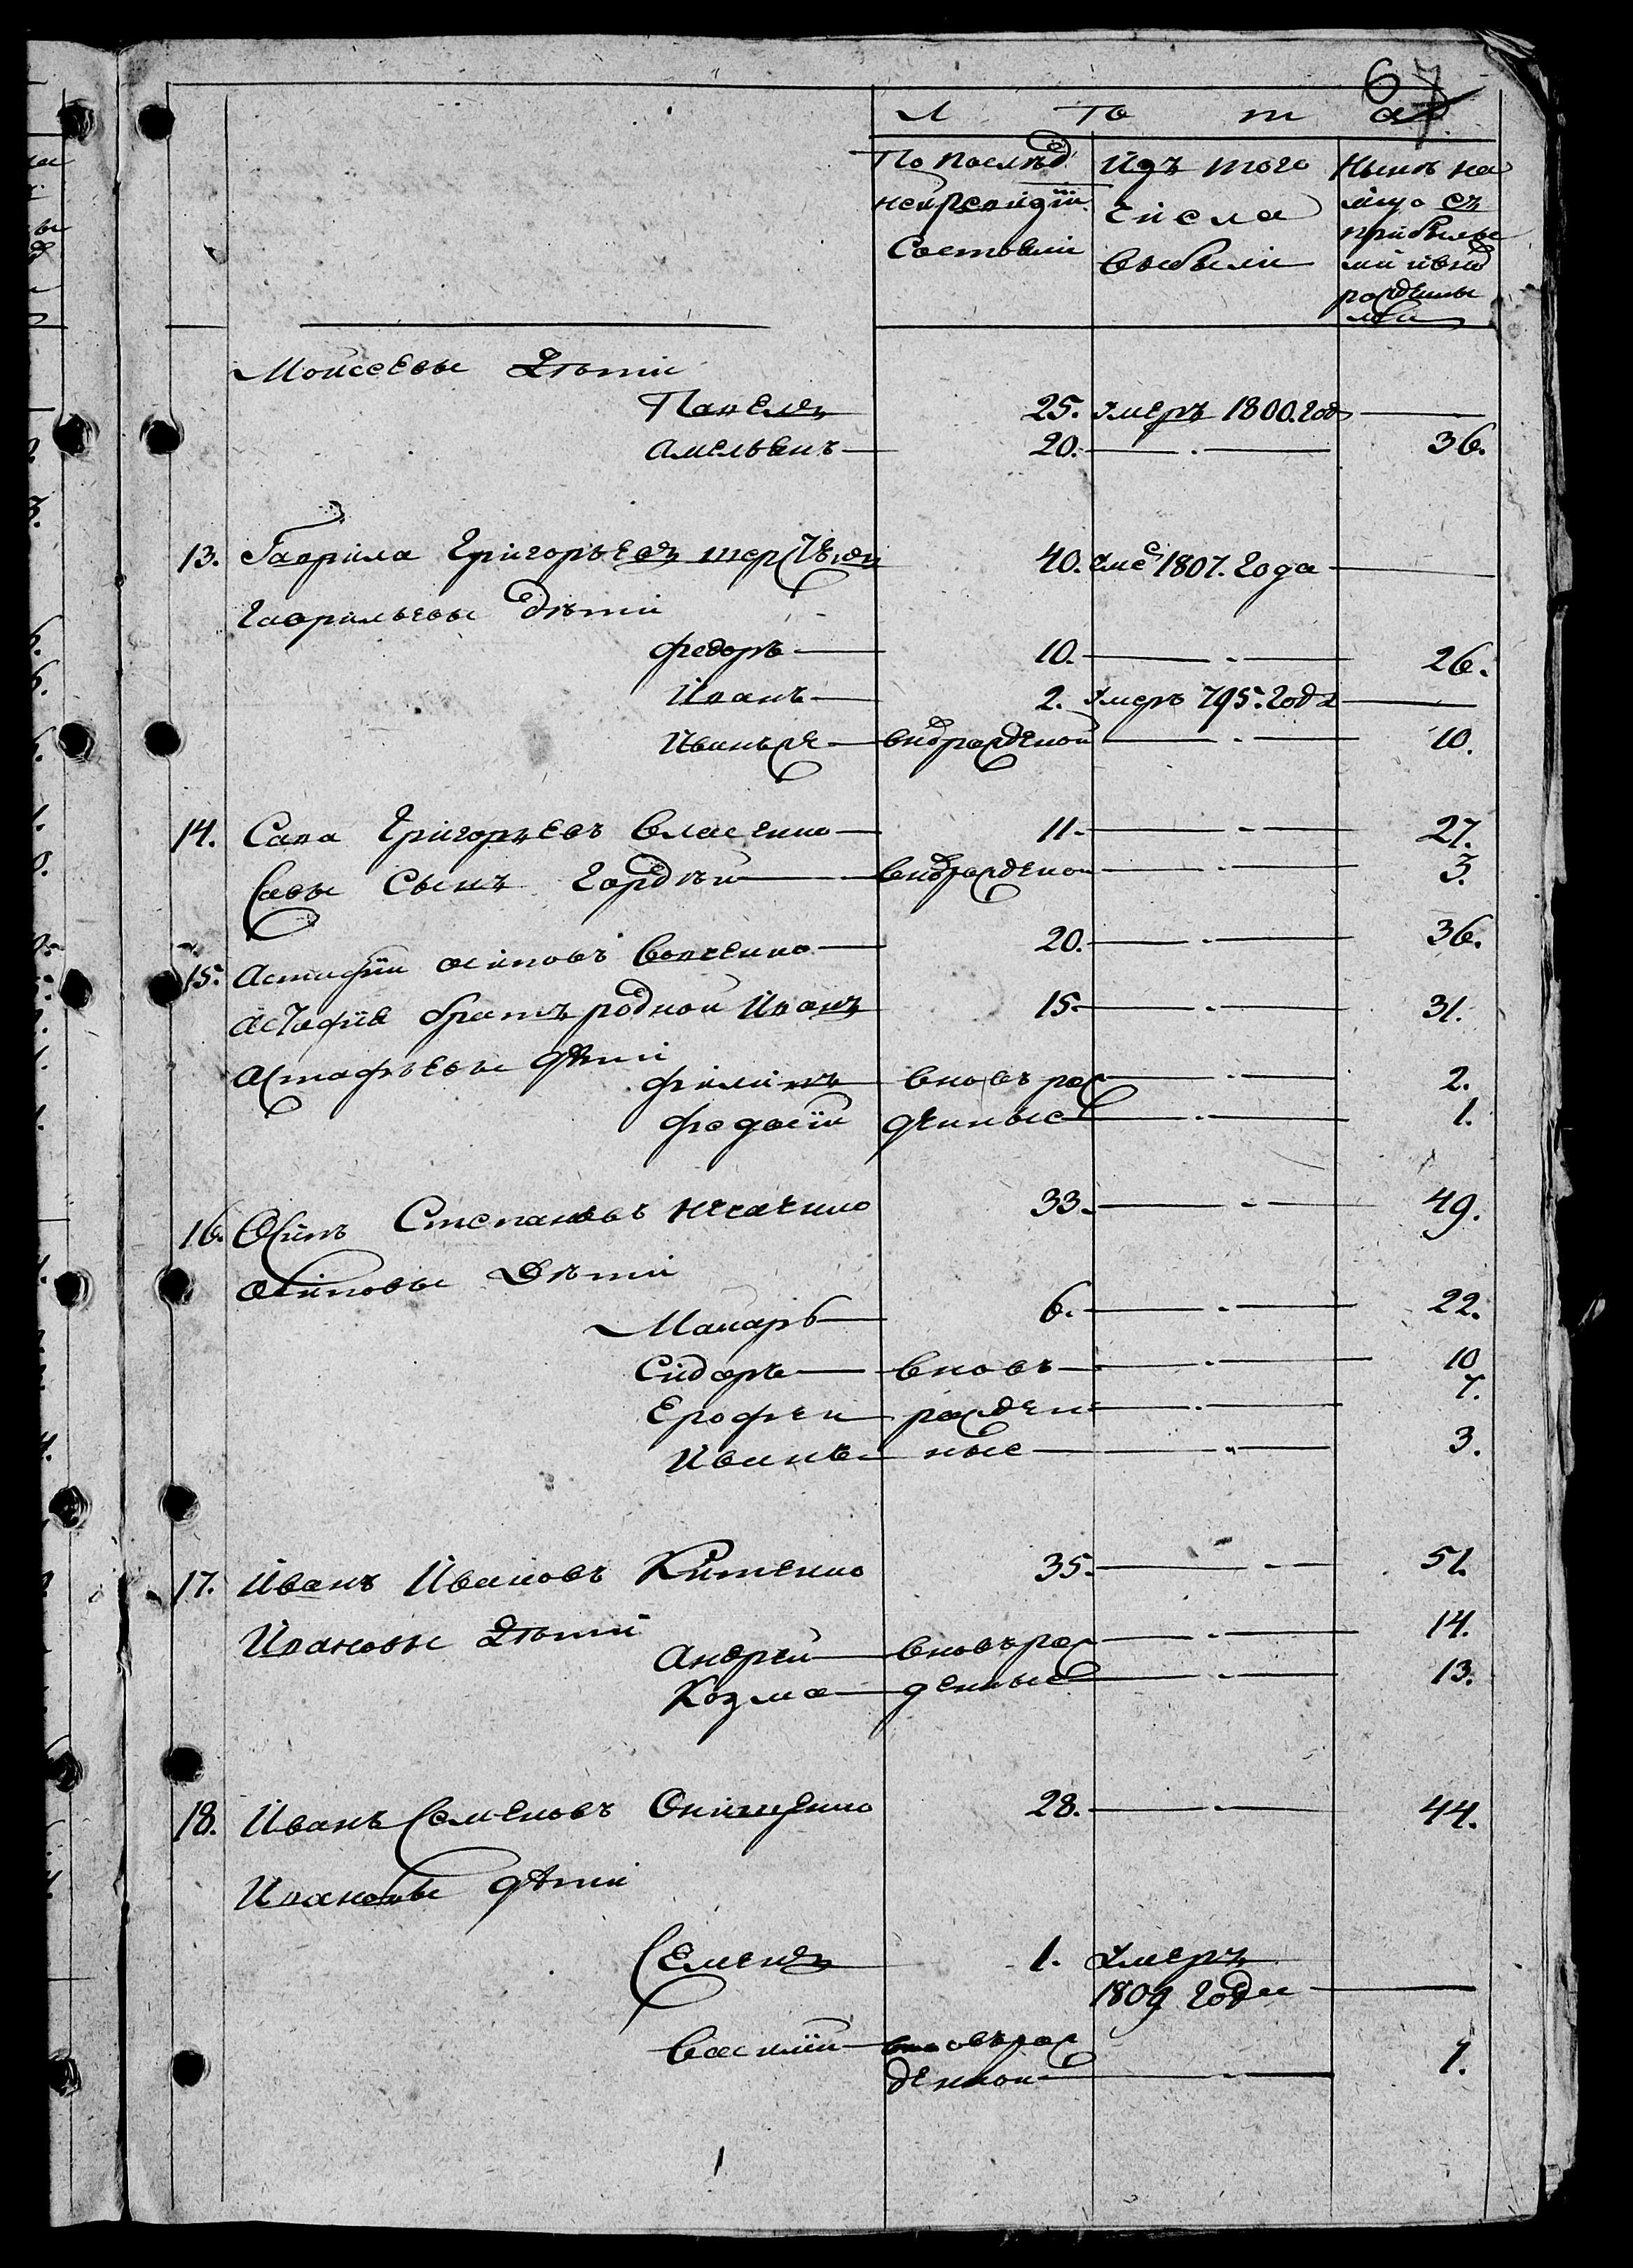 6
Лѣта
По послѣд
ней ревизіи
Состояли
Изъ того
числа
выбыли
Нынѣ на
лицо съ
прибылы
ми и внов
рожденны
ми
Моисеевы Дѣти
Павелъ 25. умеръ 1800. год
Амельянъ 20. 36.
13. Гаврила Григорьевъ 40. 1807. года
Гаврильевы дѣти
Федоръ 10. 26.
Иванъ 2. умеръ 795. года
Иванъ же внов рожденой 10.
14. Сава Григорьевъ Власенко 11. 27.
Савы Сынъ Гордѣй внов рожденой 3.
15. Астафій Осиповъ Вовченко 20. 36.
Астафія братъ родной Иванъ 15. 31.
Астафьевы дѣти
Филипъ вновь рож 2.
Федосій денные 1.
16. Осипъ Степановъ 33. 49.
Осиповы Дѣти
Макаръ 6. 22.
Сидоръ вновь 10
Ерофеи рожден 7.
Иванъ ные 3.
17. Иванъ Ивановъ 35. 51.
Ивановы Дѣти
Андрей вновь рож 14.
Козма денные 13.
18. Иванъ Семеновъ Онищенко 28. 44.
Ивановы дѣти
Семенъ 1. умеръ
1809 года
Василій вновь рож
денной 1.